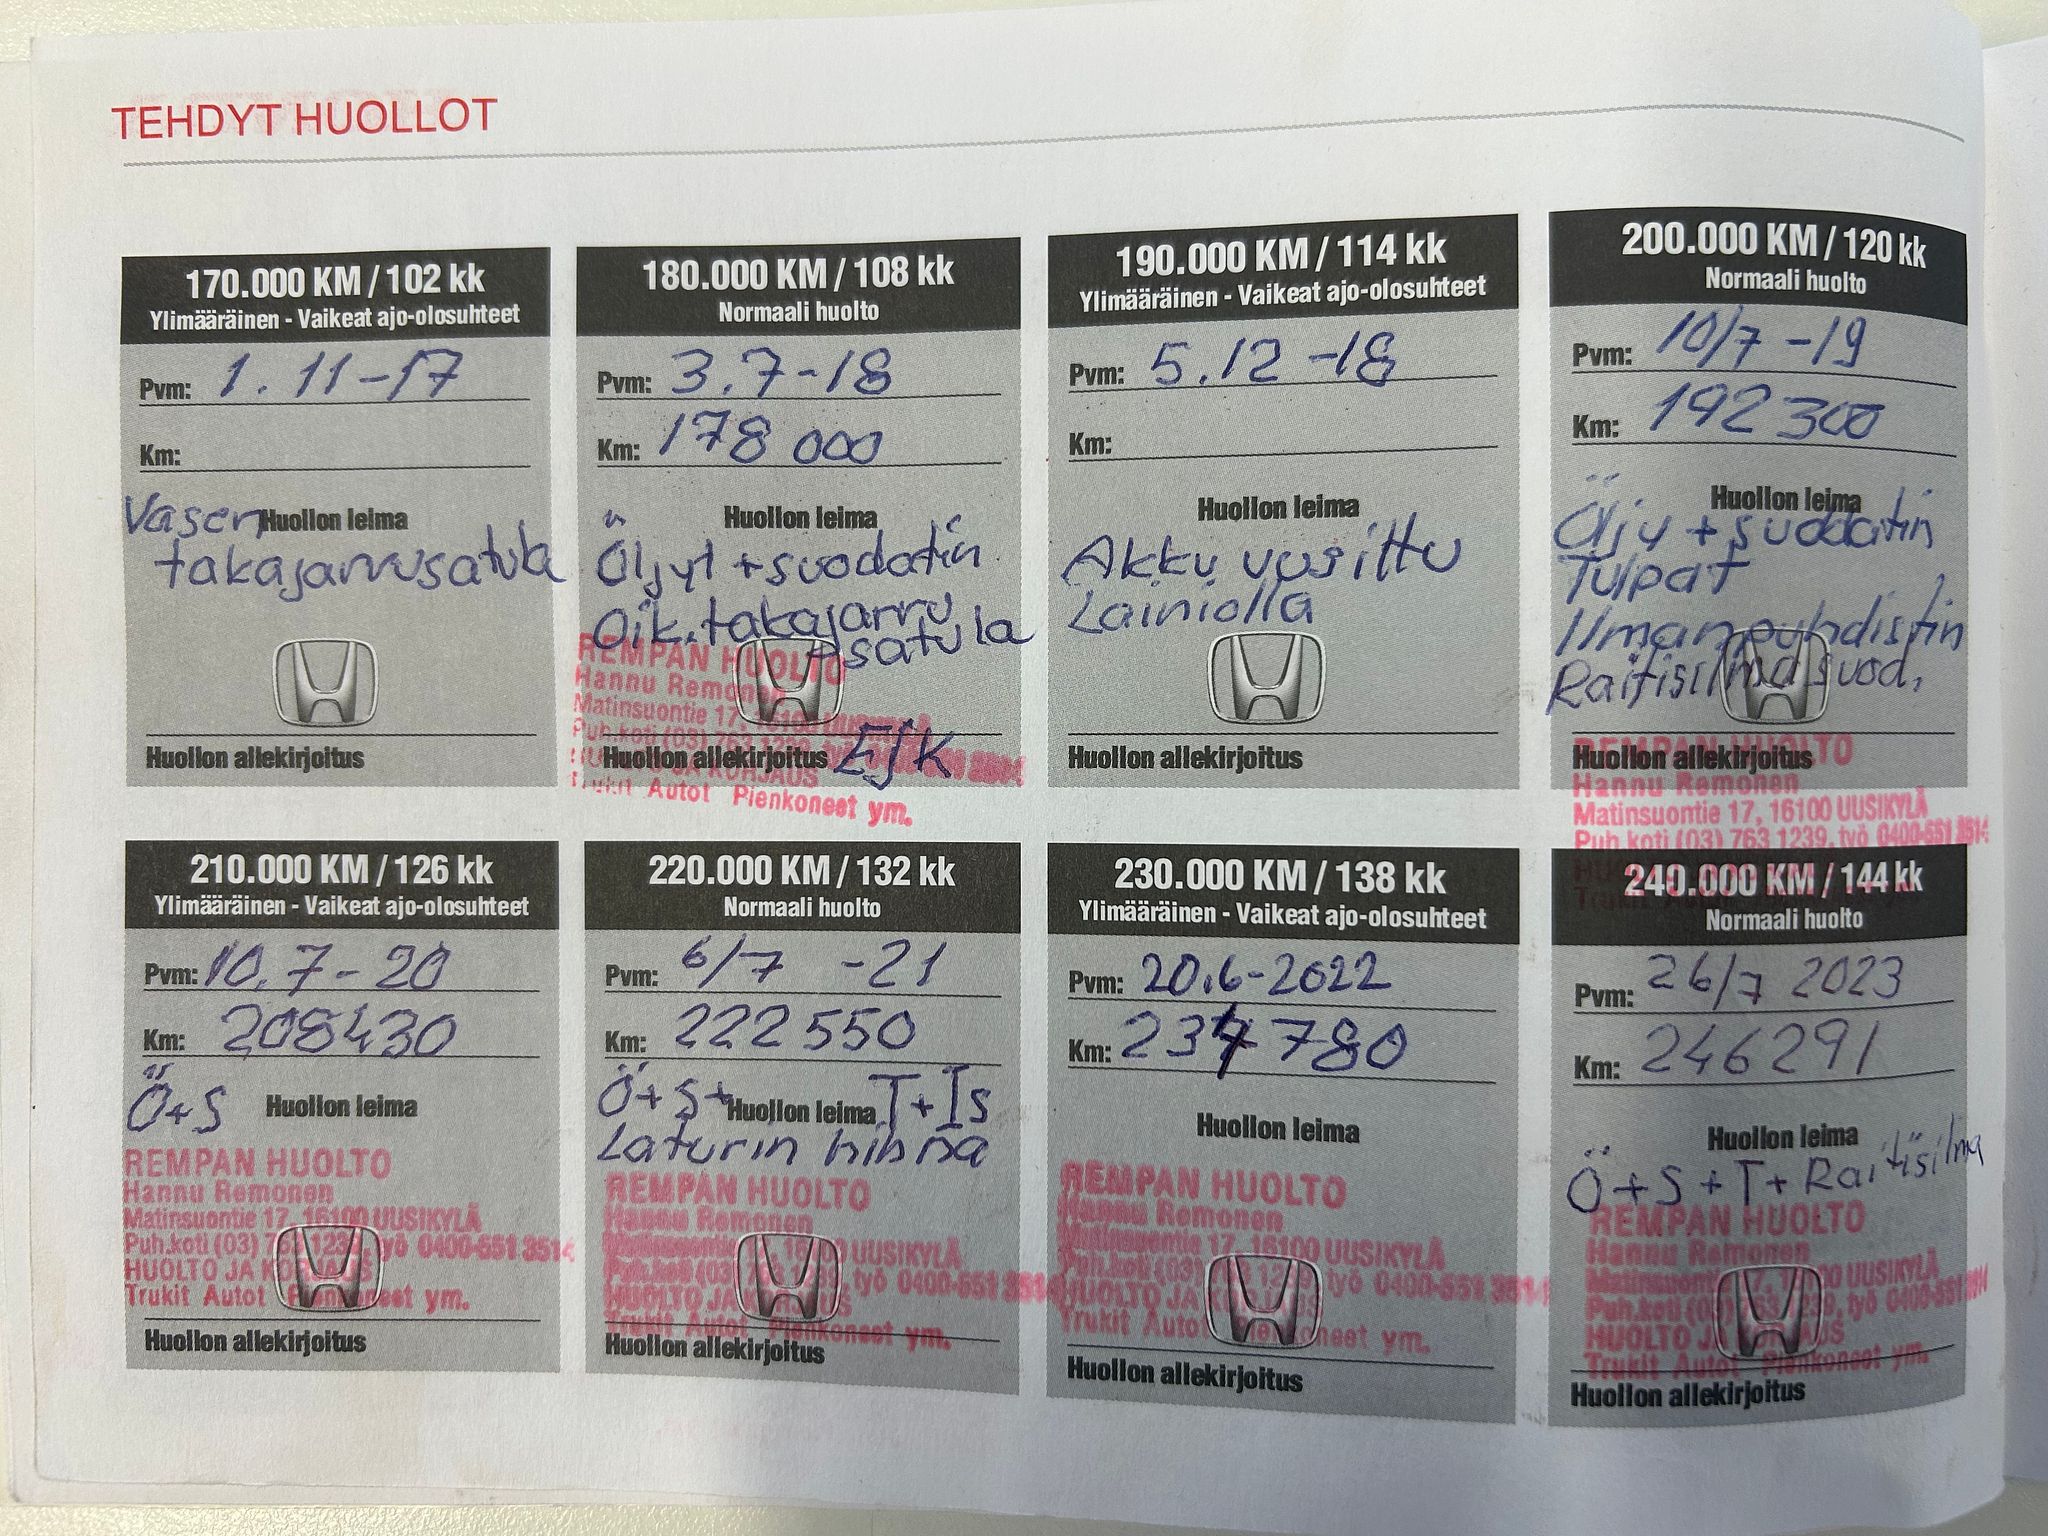 TEHDYT HUOLLOT
170.000 KM / 102 kk
Ylimääräinen - Vaikeat ajo-olosuhteet
Pvm: 1.11-17
Km:
Huollon leima
Vasen
takajarrusatula
Huollon allekirjoitus
180.000 KM / 108 kk
Normaali huolto
Pvm: 3.7-18
Km: 178 000
Huollon leima
Öljyt + suodatin
Oik. takajarru
satula
REMPAN HUOLTO
Hannu Remonen
Matinsuontie 17, 16100 UUSIKYLÄ
Puh.koti (03) 763 1239, työ
HUOLTO JA KORJAUS
Trukit Autot Pienkoneet ym.
Huollon allekirjoitus EJK
190.000 KM / 114 kk
Ylimääräinen - Vaikeat ajo-olosuhteet
Pvm: 5.12-18
Km:
Huollon leima
Akku uusittu
Lainiolla
Huollon allekirjoitus
200.000 KM / 120 kk
Normaali huolto
Pvm: 10/7 -19
Km: 192 300
Huollon leima
Öljy + suodatin
Tulpat
Ilmanpuhdistin
Raitisilmasuod.
Huollon allekirjoitus
REMPAN HUOLTO
Hannu Remonen
Matinsuontie 17, 16100 UUSIKYLÄ
Puh.koti (03) 763 1239, työ 0400-551 3514
210.000 KM / 126 kk
Ylimääräinen - Vaikeat ajo-olosuhteet
Pvm: 10.7-20
Km: 208430
Ö+S Huollon leima
REMPAN HUOLTO
Hannu Remonen
Matinsuontie 17, 16100 UUSIKYLÄ
Puh.koti (03) 763 1239, työ 0400-551 3514
HUOLTO JA KORJAUS
Trukit Autot Pienkoneet ym.
Huollon allekirjoitus
220.000 KM / 132 kk
Normaali huolto
Pvm: 6/7 -21
Km: 222 550
Ö+S+ Huollon leima T+Is
Laturin hihna
REMPAN HUOLTO
Hannu Remonen
Matinsuontie 17, 16100 UUSIKYLÄ
Puh.koti (03) 763 1239, työ 0400-551 3514
HUOLTO JA KORJAUS
Trukit Autot Pienkoneet ym.
Huollon allekirjoitus
230.000 KM / 138 kk
Ylimääräinen - Vaikeat ajo-olosuhteet
Pvm: 20.6-2022
Km: 234 780
Huollon leima
REMPAN HUOLTO
Hannu Remonen
Matinsuontie 17, 16100 UUSIKYLÄ
Puh.koti (03) 763 1239, työ 0400-551 3514
HUOLTO JA KORJAUS
Trukit Autot Pienkoneet ym.
Huollon allekirjoitus
240.000 KM / 144 kk
Normaali huolto
Pvm: 26/7 2023
Km: 246291
Huollon leima
Ö+S+T+Raitisilma
REMPAN HUOLTO
Hannu Remonen
Matinsuontie 17, 16100 UUSIKYLÄ
Puh.koti (03) 763 1239, työ 0400-551 3514
HUOLTO JA KORJAUS
Trukit Autot Pienkoneet ym.
Huollon allekirjoitus